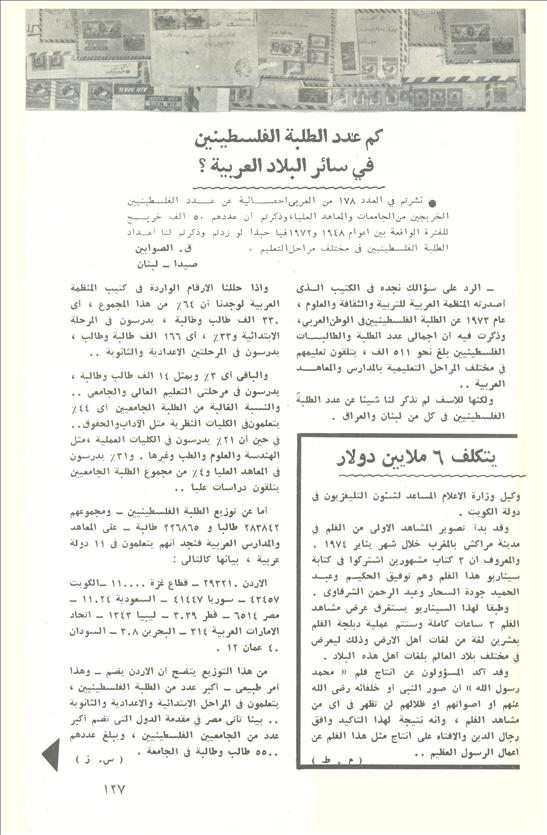 كم عدد الطلبة الفلسطينين
في سائر البلاد العربية ؟
● نشرتم في العدد ١٧٨ من العربي احصائية عن عدد الفلسطينيين
الخريجين من الجامعات والمعاهد العليا، وذكرتم أن عددهم ٥٠ الف خريج
للفترة الواقعة بين اعوام ١٩٤٨ و١٩٧٢ فيا حبذا لو زدتم وذكرتم لنا اعداد
الطلبة الفلسطينيين في مختلف مراحل التعليم .
ق. الصوابين
صيدا ــ لبنان
ــ الرد على سؤالك نجده في الكتيب الذي
أصدرته المنظمة العربية للتربية والثقافة والعلوم ،
عام ١٩٧٣ عن الطلبة الفلسطينيين في الوطن العربي،
وذكرت فيه أن اجمالى عدد الطلبة والطالبات
الفلسطينيين بلغ نحو ٥١١ الف ، يتلقون تعليمهم
في مختلف المراحل التعليمية بالمدارس والمعاهد
العربية ..
ولكنها للاسف لم تذكر لنا شيئا عن عدد الطلبة
الفلسطينيين في كل من لبنان والعراق .
واذا حللنا الارقام الواردة في كتيب المنظمة
العربية لوجدنا أن ٦٤٪ من هذا المجموع ، أى
٣٣٠ الف طالب وطالبة ، يدرسون في المرحلة
الابتدائية و٣٣٪ ، أى ١٦٦ الف طالب وطالبة ،
يدرسون في المرحلتين الاعدادية والثانوية ..
والباقى أى ٣٪ ويمثل ١٤ الف طالب وطالبة ،
يدرسون في مرحلتى التعليم العالى والجامعى ..
والنسبة الغالبة من الطلبة الجامعيين أى ٤٤٪
يتعلمون في الكليات النظرية مثل الآداب والحقوق..
في حين أن ٢١٪ يدرسون في الكليات العملية ، مثل
الهندسة والعلوم والطب وغيرها . و٣١٪ يدرسون
في المعاهد العليا و٤٪ من مجموع الطلبة الجامعيين
يتلقون دراسات عليا ..
أما عن توزيع الطلبة الفلسطينيين ــ ومجموعهم
٢٨٣٨٤٢ طالبا و ٢٢٦٨٦٥ طالبة ــ على المعاهد
والمدارس العربية فنجد أنهم يتعلمون في ١١ دولة
عربية ، بيانها كالتالى :
الاردن ٢٩٣٢١٠ ــ قطاع غزة ١١٠٠٠٠ ــ الكويت
٤٣٤٥٧ ــ سوريا ٤١٤٤٧ ــ السعودية ١١٠٢٤ ــ
مصر ٦٥١٤ ــ قطر ٣٠٣٩ ــ ليبيا ١٣٤٣ ــ اتحاد
الامارات العربية ٣١٤ ــ البحرين ٣٠٨ ــ السودان
٤٠ عمان ١٢ .
من هذا التوزيع يتضح أن الاردن يضم ــ وهذا
أمر طبيعى ــ أكبر عدد من الطلبة الفلسطينيين ،
يتعلمون في المراحل الابتدائية والاعدادية والثانوية
.. بينما تأتى مصر في مقدمة الدول التى تضم أكبر
عدد من الجامعيين الفلسطينيين ، ويبلغ عددهم
٥٥٠٠ طالب وطالبة في الجامعة .
( س. ز )
يتكلف ٦ ملايين دولار
وكيل وزارة الاعلام المساعد لشئون التليفزيون في
دولة الكويت .
وقد بدأ تصوير المشاهد الاولى من الفلم في
مدينة مراكش بالمغرب خلال شهر يناير ١٩٧٤ .
والمعروف ان ٣ كتاب مشهورين اشتركوا في كتابة
سيناريو هذا الفلم وهم توفيق الحكيم وعبد
الحميد جودة السحار وعبد الرحمن الشرقاوى .
وطبقا لهذا السيناريو يستغرق عرض مشاهد
الفلم ٣ ساعات كاملة وستتم عملية دبلجة الفلم
بعشرين لغة من لغات أهل الارض وذلك ليعرض
في مختلف بلاد العالم بلغات أهل هذه البلاد .
وقد أكد المسؤولون عن انتاج فلم « محمد
رسول الله » ان صور النبى أو خلفائه رضى الله
عنهم او اصواتهم او ظلالهم لن تظهر في اى من
مشاهد الفلم ، وانه نتيجة لهذا التاكيد وافق
رجال الدين والافتاء على انتاج مثل هذا الفلم عن
اعمال الرسول العظيم ..
( م . ط )
١٢٧